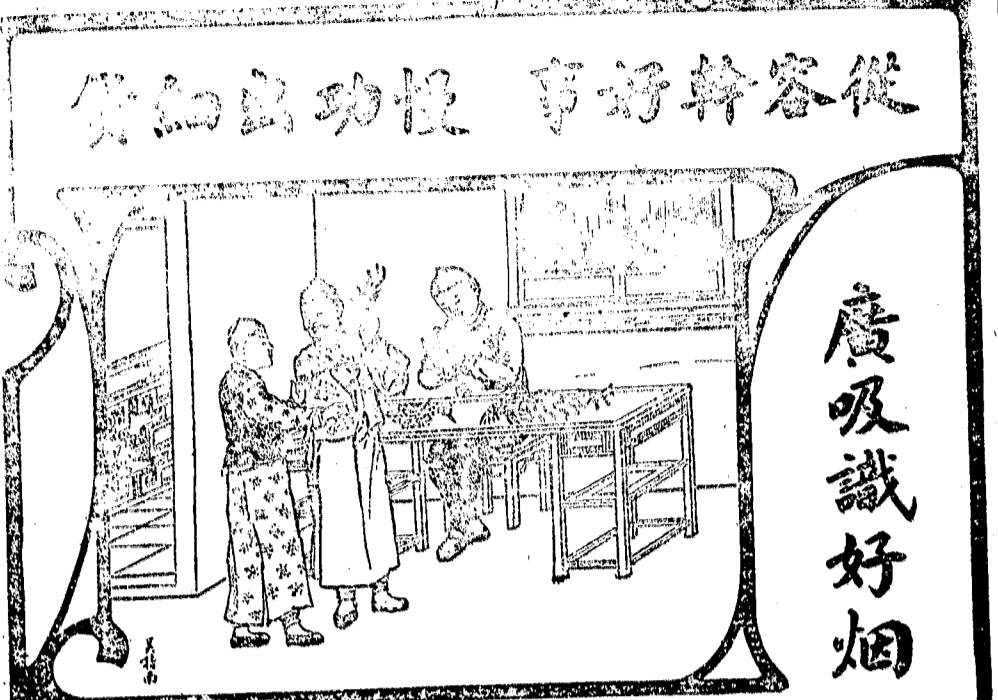 從容幹好事 慢功出細貨
廣吸識好烟